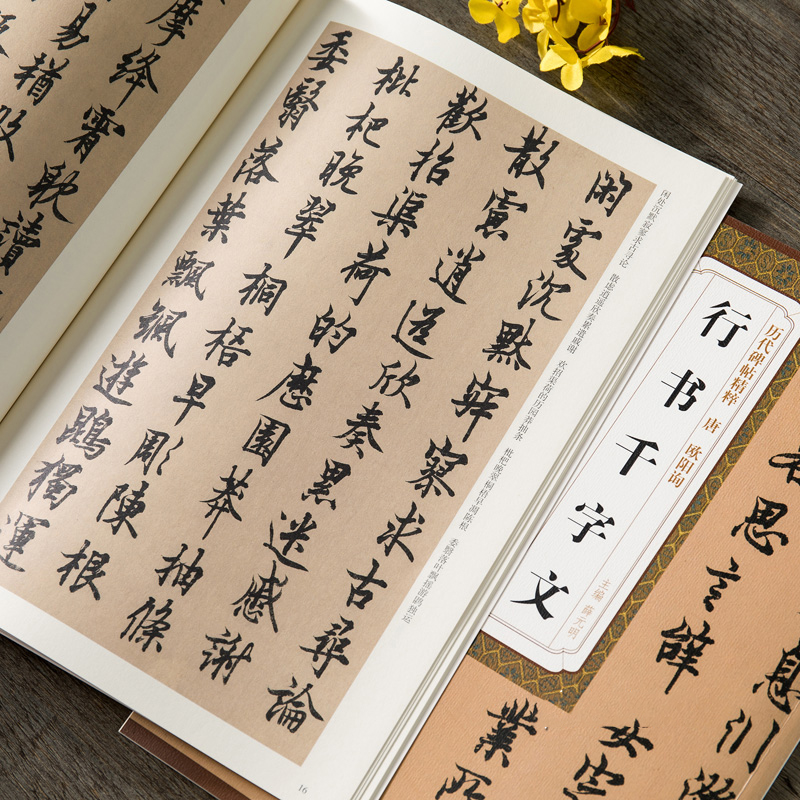 闲處沉默寂寥求古尋論
散慮逍遥欣奏累遣感謝
歡招渠荷的歷園莽抽條
枇杷晚翠桐梧早彫陳根
委翳落葉飄颻遊鵾獨運
闲处沉默寂寥求古寻论 散虑逍遥欣奏累遣戚谢 欢招渠荷的历园莽抽条 枇杷晚翠桐梧早凋陈根 委翳落叶飘摇游鹍独运
16
摩絳霄耽讀
易輶攸
历代碑帖精粹 唐 欧阳询
行书千字文
主编 薛元明
思言辭
業所